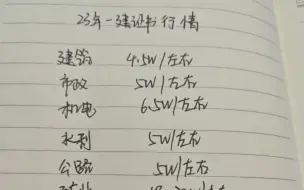 23年一建证书行情
建筑 4.5W/左右
市政 5W/左右
机电 6.5W/左右
水利 5W/左右
公路 5W/左右